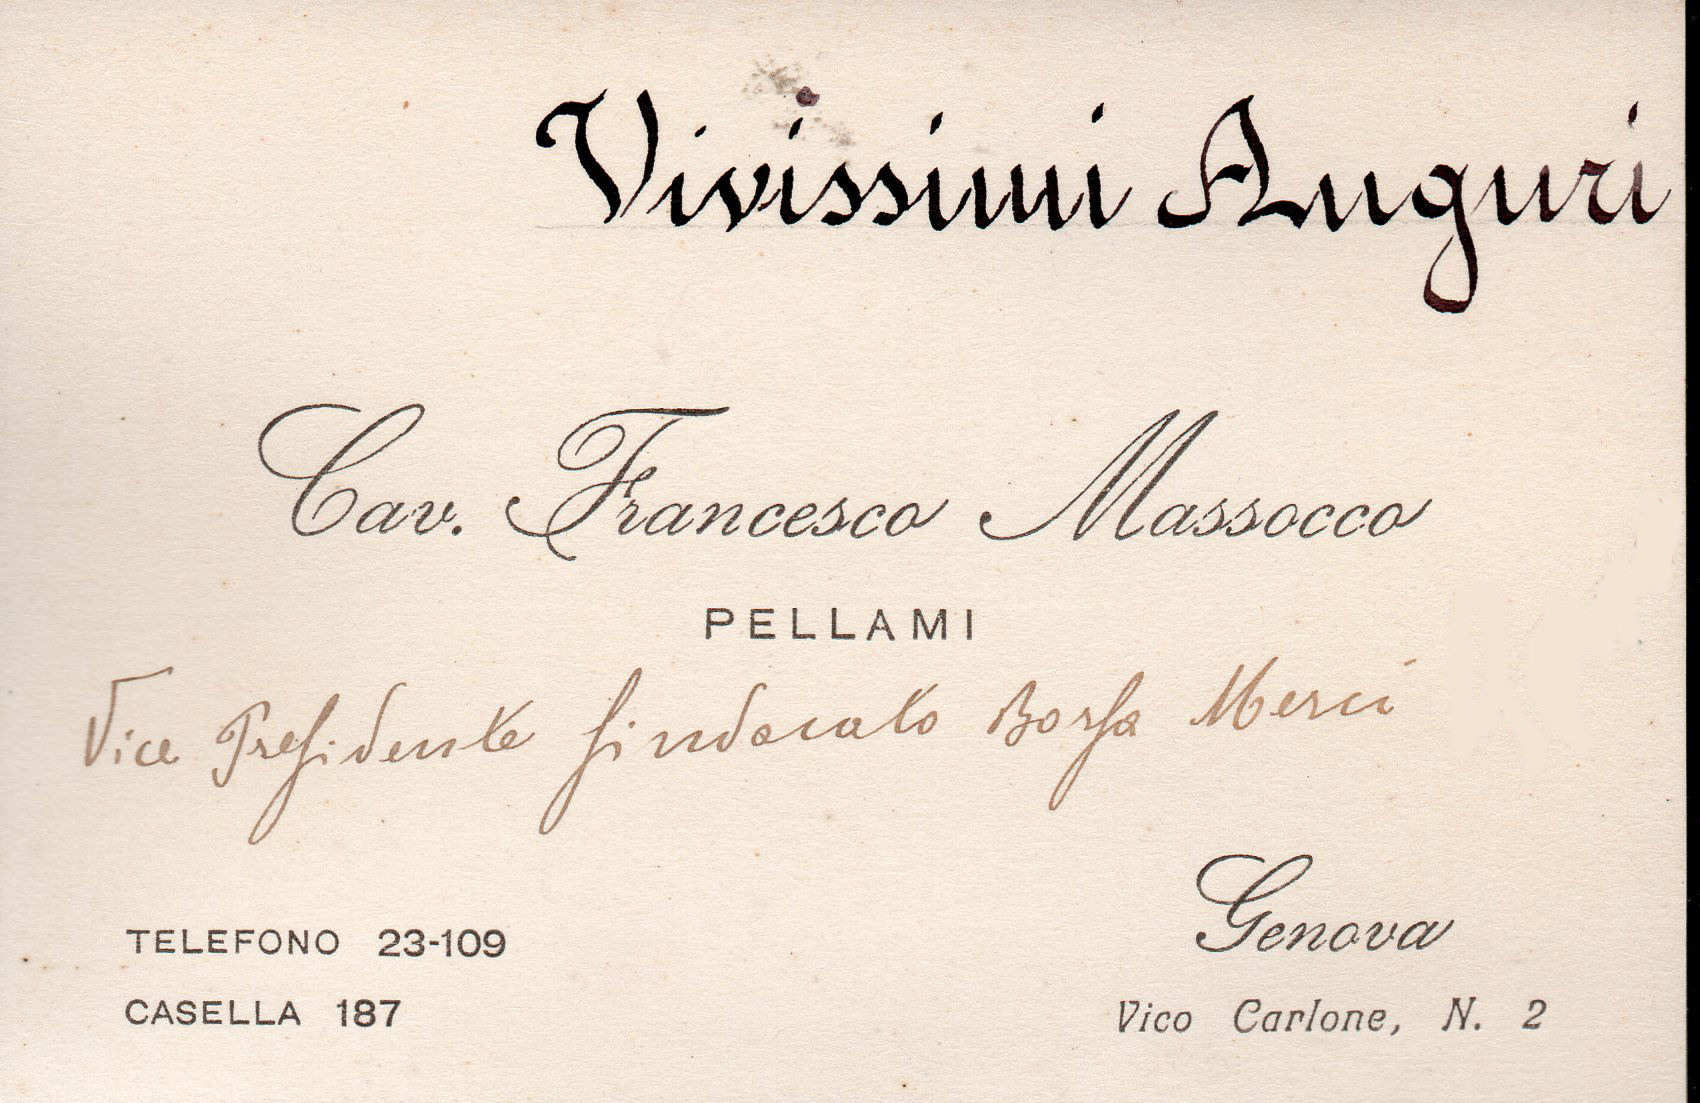 Vivissimi Auguri
Cav. Francesco Massocco
PELLAMI
Vice Presidente Sindacato Borsa Merci
TELEFONO 23-109
CASELLA 187
Genova
Vico Carlone, N. 2